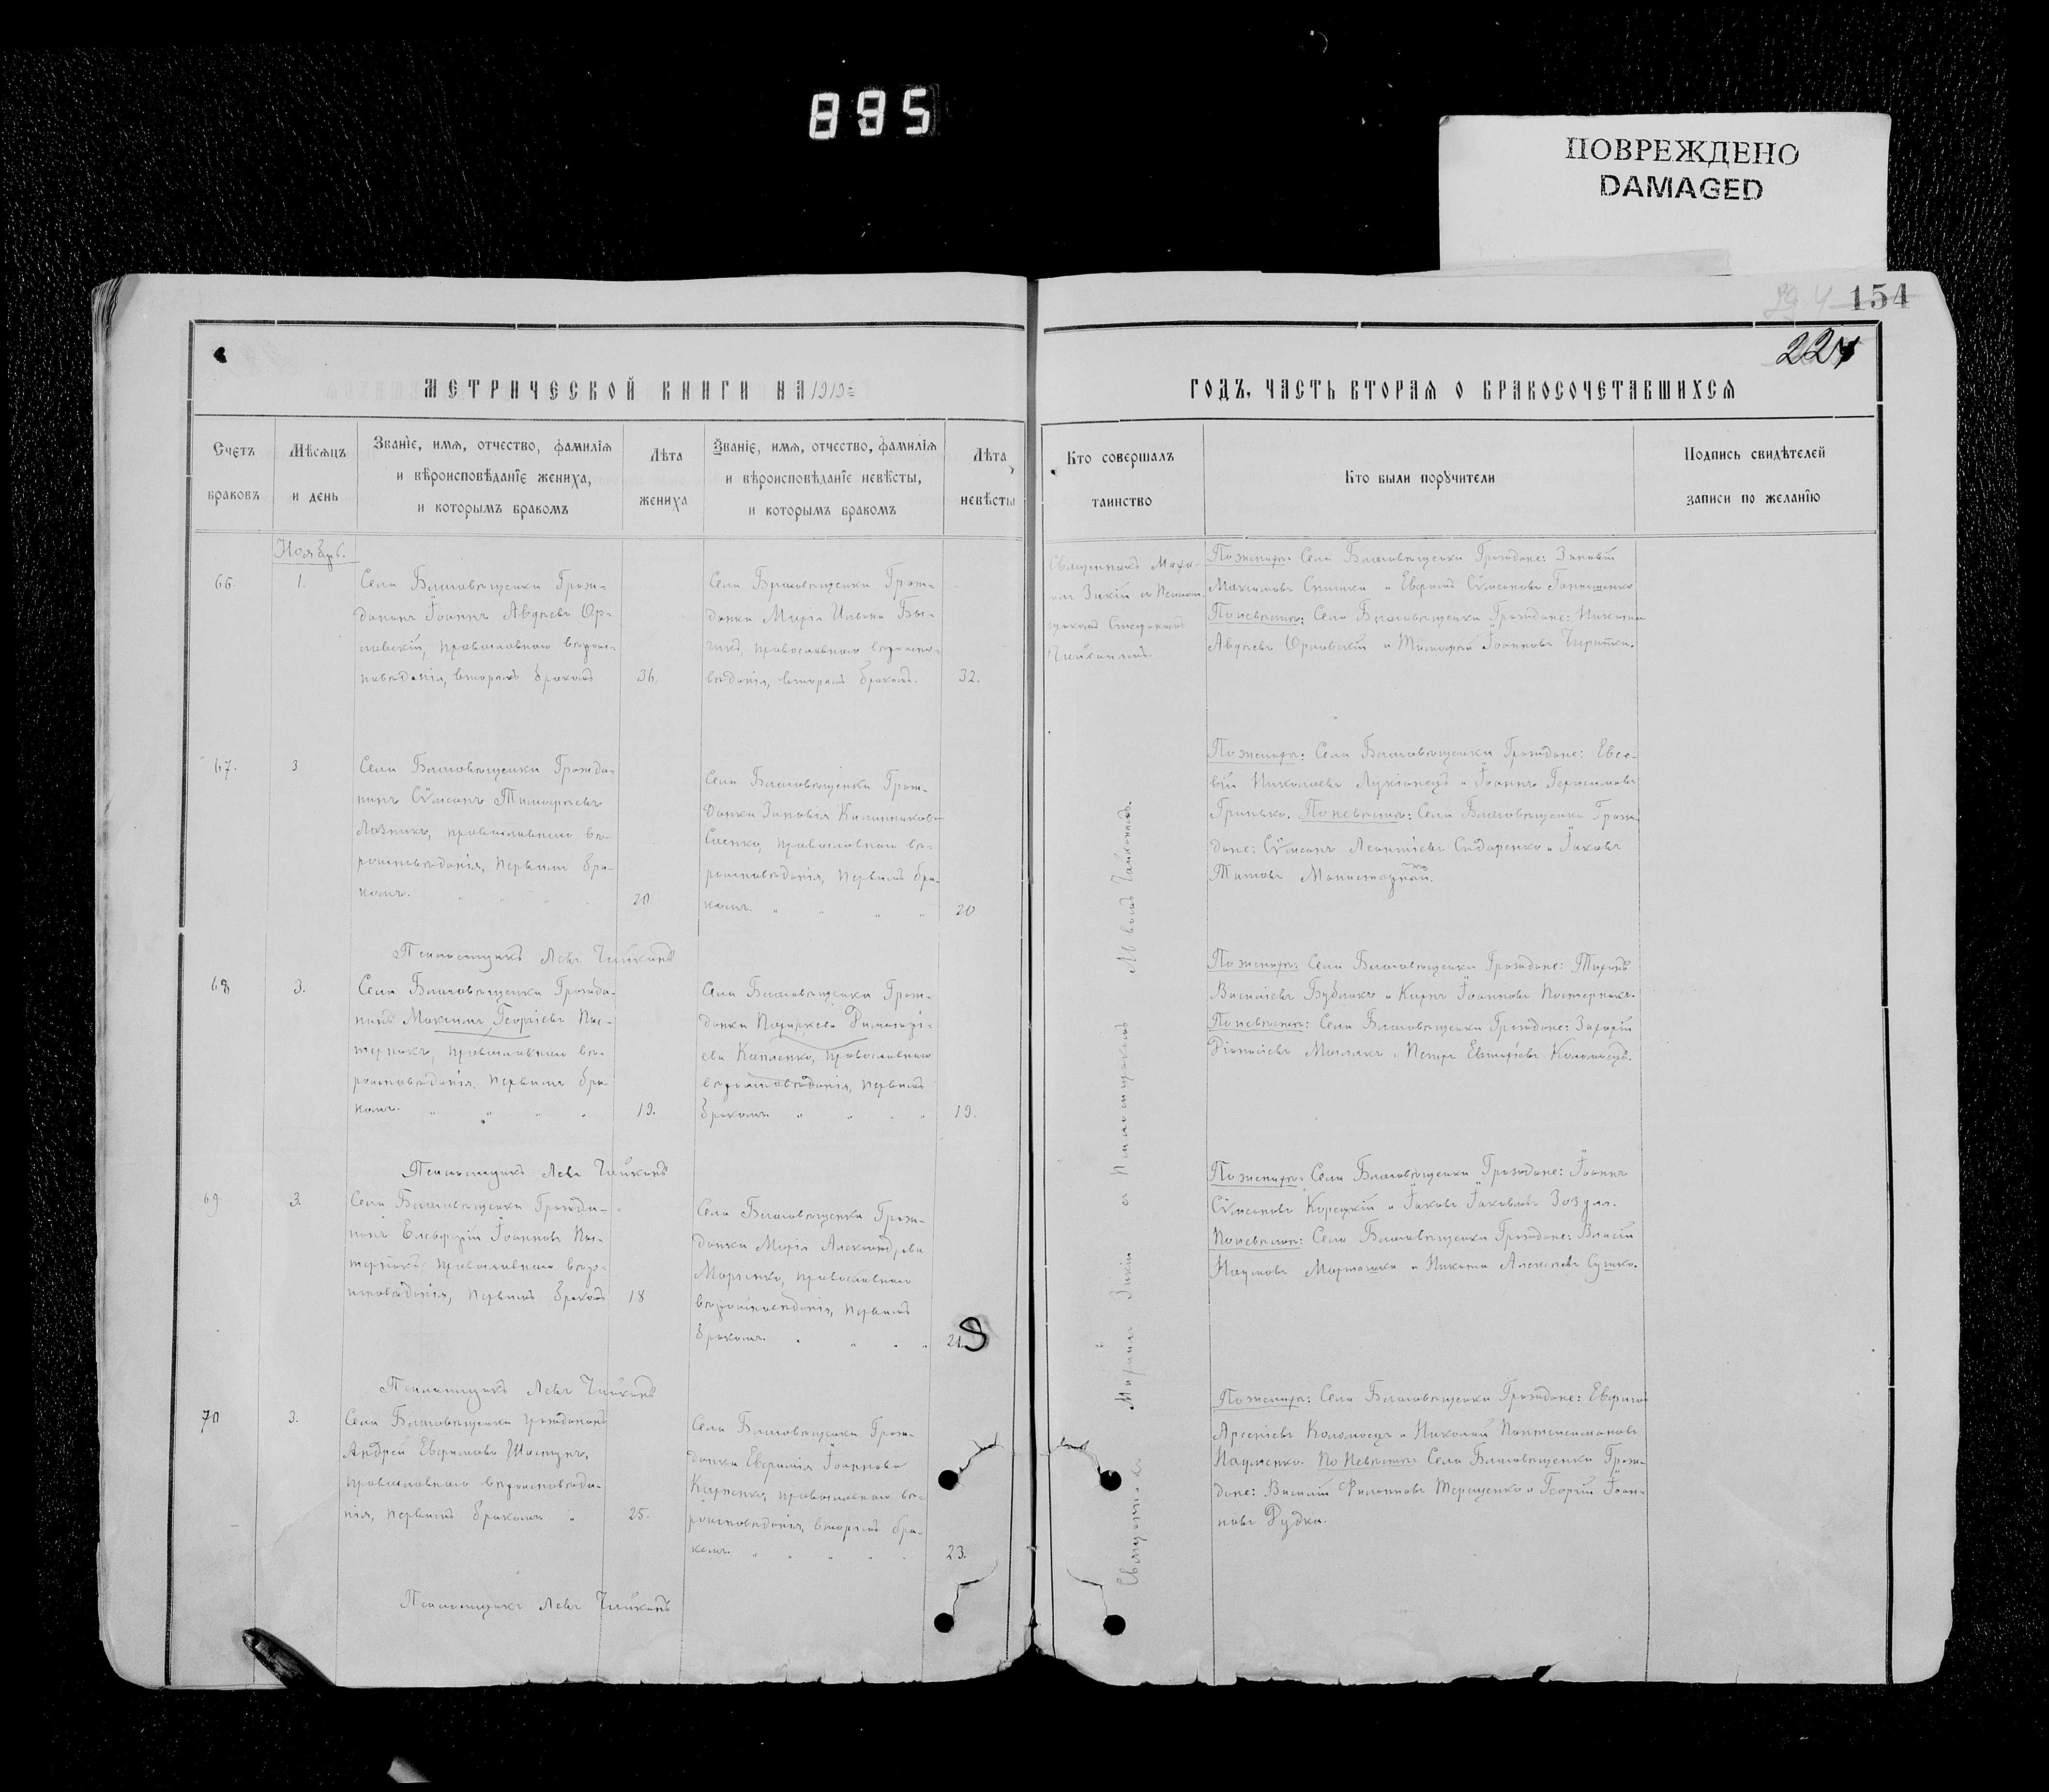 885
ПОВРЕЖДЕНО
DAMAGED
154
224
МЕТРИЧЕСКОЙ КНИГИ НА 1919
ГОДЪ, ЧАСТЬ ВТОРАѦ О БРАКОСОЧЕТАВШИХСѦ
Счетъ браковъ
Мѣсѧцъ и день
Званіе, имѧ, отчество, фамиліѧ
и вѣроисповѣданіе жениха,
и которымъ бракомъ
Лѣта жениха
Званіе, имѧ, отчество, фамиліѧ
и вѣроисповѣданіе невѣсты,
и которымъ бракомъ
Лѣта невѣсты
Кто совершалъ таинство
Кто были порꙋчители
Подпись свидѣтелей
записи по желанію
Ноябр.
66.
1.
Села Благовѣщенки Граж-
данинъ Іоаннъ Авдѣевъ Ор-
ловскій, православнаго вѣроис-
повѣданія, вторымъ бракомъ
36.
Села Благовѣщенки Граж-
данка Марія
православнаго вѣроиспо-
вѣданія, вторымъ бракомъ.
32.
Священникъ
Поженихѣ: Села Благовѣщенки Граждане: Зиновій
Максимовъ и Евфимій Сѵмеоновъ
Поневѣстѣ: Села Благовѣщенки Граждане: Никита
Авдѣевъ Орловскій и Тимофей Іоанновъ
67.
3
Села Благовѣщенки Гражда-
нинъ Сѵмеонъ Тимофѣевъ
Лозникъ, православнаго вѣ-
роисповѣданія, первымъ бра-
комъ.
20
Села Благовѣщенки Граж-
данка Зиновія Калинникова
Саенко, православнаго вѣ-
роисповѣданія, первымъ бра-
комъ.
20
Поженихѣ: Села Благовѣщенки Граждане: Евсе-
вій Николаевъ Лукіанецъ и Іоаннъ Герасимовъ
Гринько. Поневѣстѣ: Села Благовѣщенки Граж-
дане: Сѵмеонъ Леонтіевъ Сидоренко и Іаковъ
Титовъ
Псаломщикъ Левъ Чайкинъ
68
3.
Села Благовѣщенки Гражда-
нинъ Максимъ Георгіевъ Пас-
тернакъ, православнаго вѣ-
роисповѣданія, первымъ бра-
комъ.
19.
Села Благовѣщенки Граж-
данка
православнаго
вѣроисповѣданія, первымъ
бракомъ.
19.
Поженихѣ: Села Благовѣщенки Граждане:
Василіевъ Бубликъ и Киръ Іоанновъ Пастернакъ.
Поневѣстѣ: Села Благовѣщенки Граждане: Захарій
и Петръ Коломоецъ.
Псаломщикъ Левъ Чайкинъ
69
3.
Села Благовѣщенки Гражда-
нинъ Елевферій Іоанновъ Пас-
тернакъ, православнаго вѣро-
исповѣданія, первымъ бракомъ
18
Села Благовѣщенки Граж-
данка Марія Александрова
Марченко, православнаго
вѣроисповѣданія, первымъ
бракомъ.
21.
Поженихѣ: Села Благовѣщенки Граждане: Іоаннъ
Сѵмеоновъ Корецкій и Іаковъ Іаковлевъ Зозуля.
Поневѣстѣ: Села Благовѣщенки Граждане: Власій
Наумовъ и Никита Алексѣевъ Сушко.
Псаломщикъ Левъ Чайкинъ
70
3.
Села Благовѣщенки гражданинъ
Андрей Евфимовъ Шаступъ,
православнаго вѣроисповѣда-
нія, первымъ бракомъ
25.
Села Благовѣщенки Граж-
данка Евфимія Іоаннова
Карпенко, православнаго вѣ-
роисповѣданія, вторымъ бра-
комъ.
23.
Поженихѣ: Села Благовѣщенки Граждане: Евфимій
Арсеніевъ Коломоецъ и Николай Пантелеимоновъ
Науменко. По Невѣстѣ: Села Благовѣщенки Граж-
дане: Василій Филипповъ Терещенко и Георгій Іоан-
новъ Рудка.
Псаломщикъ Левъ Чайкинъ
Священникъ съ Псаломщикомъ Львомъ Чайкинымъ.